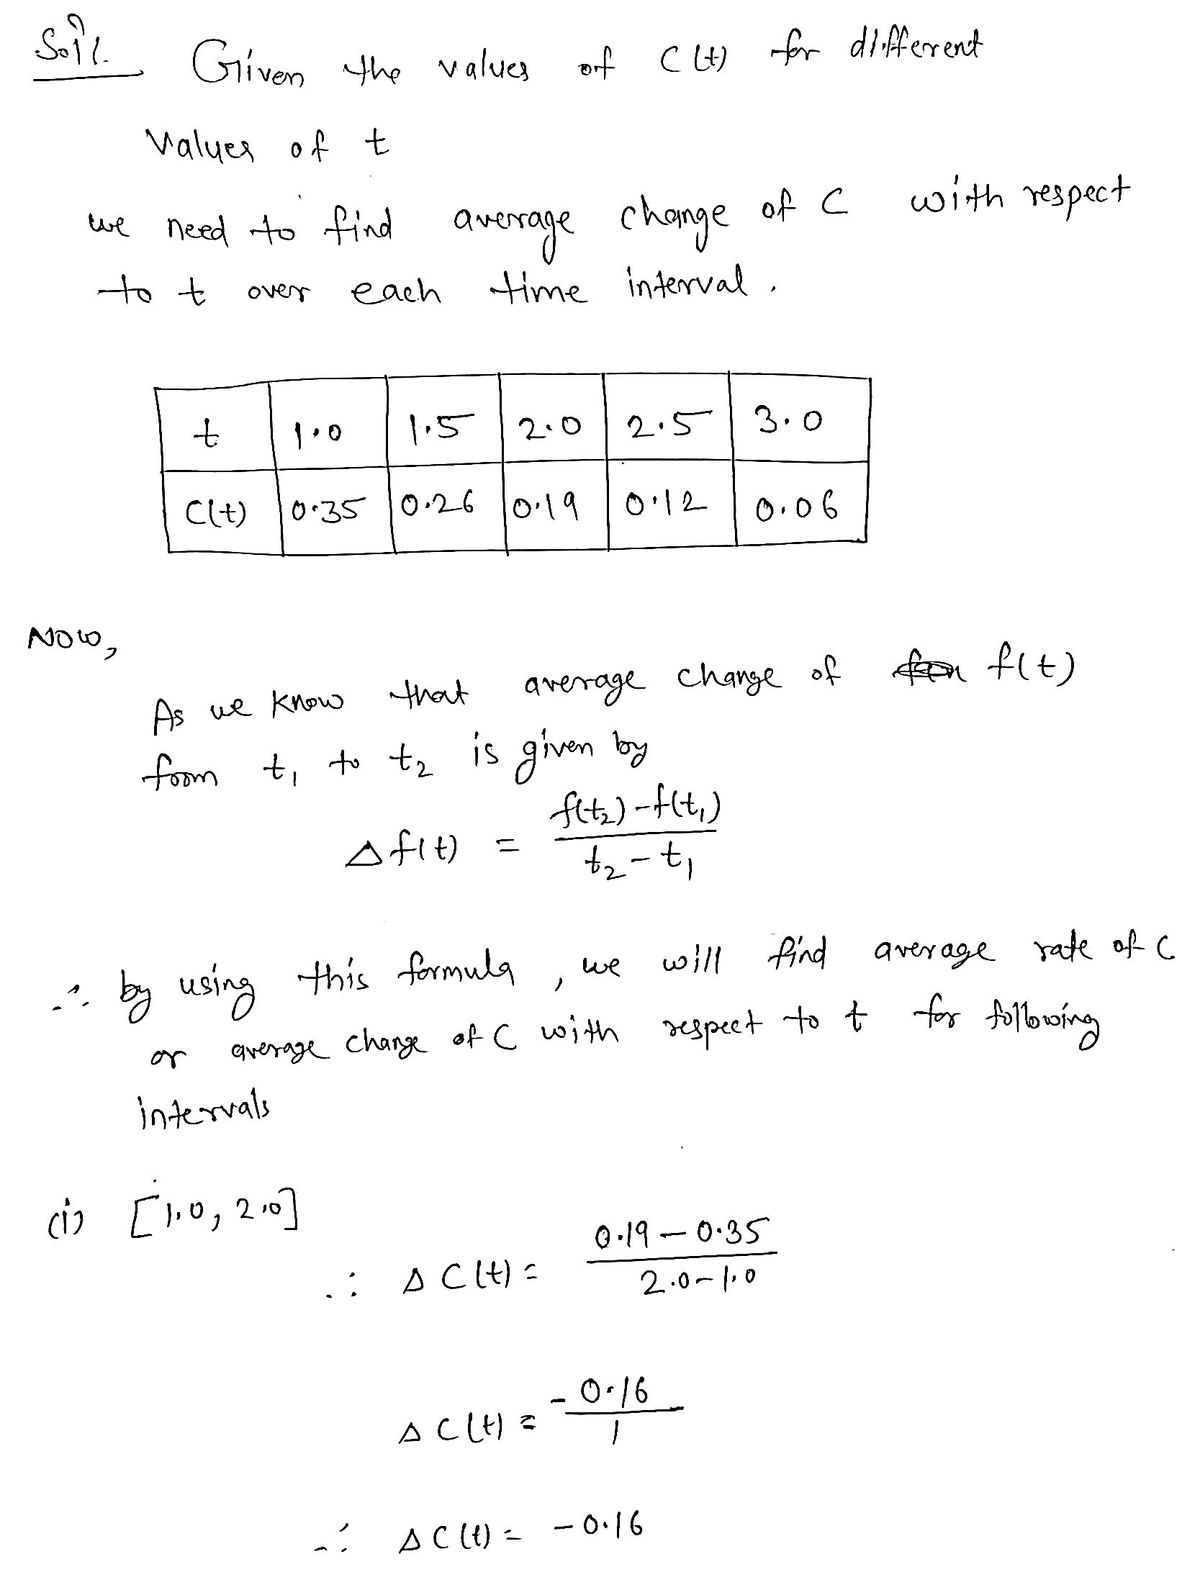 Solⁿ:
Given the values of C(t) for different
values of t
we need to find average change of C with respect
to t over each time interval.
t 1.0 1.5 2.0 2.5 3.0
C(t) 0.35 0.26 0.19 0.12 0.06
Now,
As we know that average change of f(t)
from t₁ to t₂ is given by
Δf(t) = f(t₂)-f(t₁) / t₂-t₁
∴ by using this formula, we will find average rate of C
or average change of C with respect to t for following
intervals
(i) [1.0, 2.0]
∴ ΔC(t) = 0.19-0.35 / 2.0-1.0
ΔC(t) = -0.16 / 1
∴ ΔC(t) = -0.16